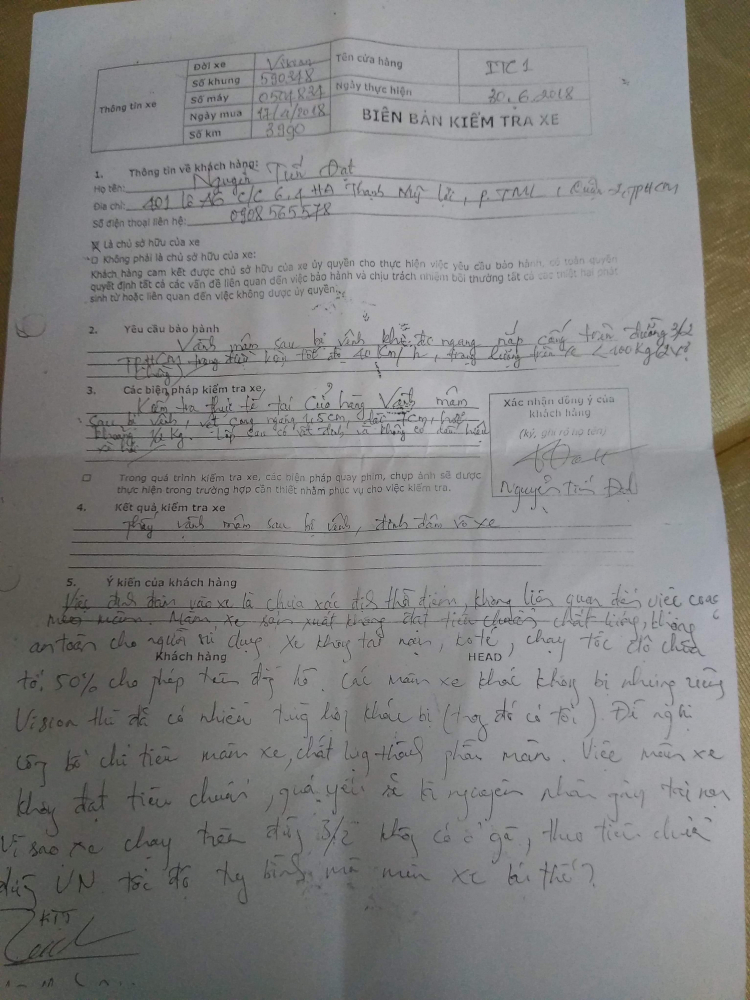 Thông tin xe
Đời xe Vision
Số khung 590348
Số máy 0504831
Ngày mua 2018
Số km 3990
Tên cửa hàng ITC1
Ngày thực hiện 30.6.2018
BIÊN BẢN KIỂM TRA XE
1. Thông tin về khách hàng:
Họ tên: Nguyễn Tiến Đạt
Địa chỉ: 401 C/C Thạnh Mỹ Lợi, p. TML, Quận 2, TPHCM
Số điện thoại liên hệ: 0908 565578
Là chủ sở hữu của xe
Không phải là chủ sở hữu của xe:
Khách hàng cam kết được chủ sở hữu của xe ủy quyền cho thực hiện việc yêu cầu bảo hành, có toàn quyền
quyết định tất cả các vấn đề liên quan đến việc bảo hành và chịu trách nhiệm bồi thường tất cả các thiệt hại phát
sinh từ hoặc liên quan đến việc không được ủy quyền.
2. Yêu cầu bảo hành
Vành mâm sau bị vênh khi ngang nắp cống trên đường 3/2
TPHCM trong điều kiện tốc độ 40 Km/h, trọng lượng trên xe < 100 Kg
3. Các biện pháp kiểm tra xe
Kiểm tra thực tế tại Cửa hàng Vành mâm
sau bị vênh, vết cong ngang 1,5cm,
Lốp sau có vết đinh và không có dấu
Xác nhận đồng ý của
khách hàng
(ký, ghi rõ họ tên)
Nguyễn Tiến Đạt
Trong quá trình kiểm tra xe, các biện pháp quay phim, chụp ảnh sẽ được
thực hiện trong trường hợp cần thiết nhằm phục vụ cho việc kiểm tra.
4. Kết quả kiểm tra xe
Thấy vành mâm sau bị vênh, đinh đâm vỏ xe
5. Ý kiến của khách hàng
Việc đinh đâm vào xe là chưa xác định thời điểm, không liên quan đến việc cong
Mâm xe sản xuất không đạt tiêu chuẩn chất lượng, không
an toàn cho người sử dụng. Xe không tai nạn, ko té, chạy tốc độ chưa
Khách hàng HEAD
tới 50% cho phép trên đồng hồ. Các mâm xe khác không bị nhưng riêng
Vision thì đã có nhiều trường hợp khác bị (trong đó có tôi). Đề nghị
công bố chỉ tiêu mâm xe, chất lượng thành phần mâm. Việc mâm xe
không đạt tiêu chuẩn, quá yếu sẽ là nguyên nhân gây tai nạn
Vì sao xe chạy trên đường 3/2 không có ổ gà, theo tiêu chuẩn
đường VN tốc độ trung bình mà mâm xe bị thế?
KTT